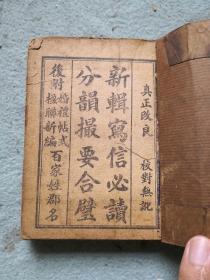 真正改良 校對無訛
新輯寫信必讀
分韻撮要合璧
後附婚禮帖式楹聯新編百家姓郡名